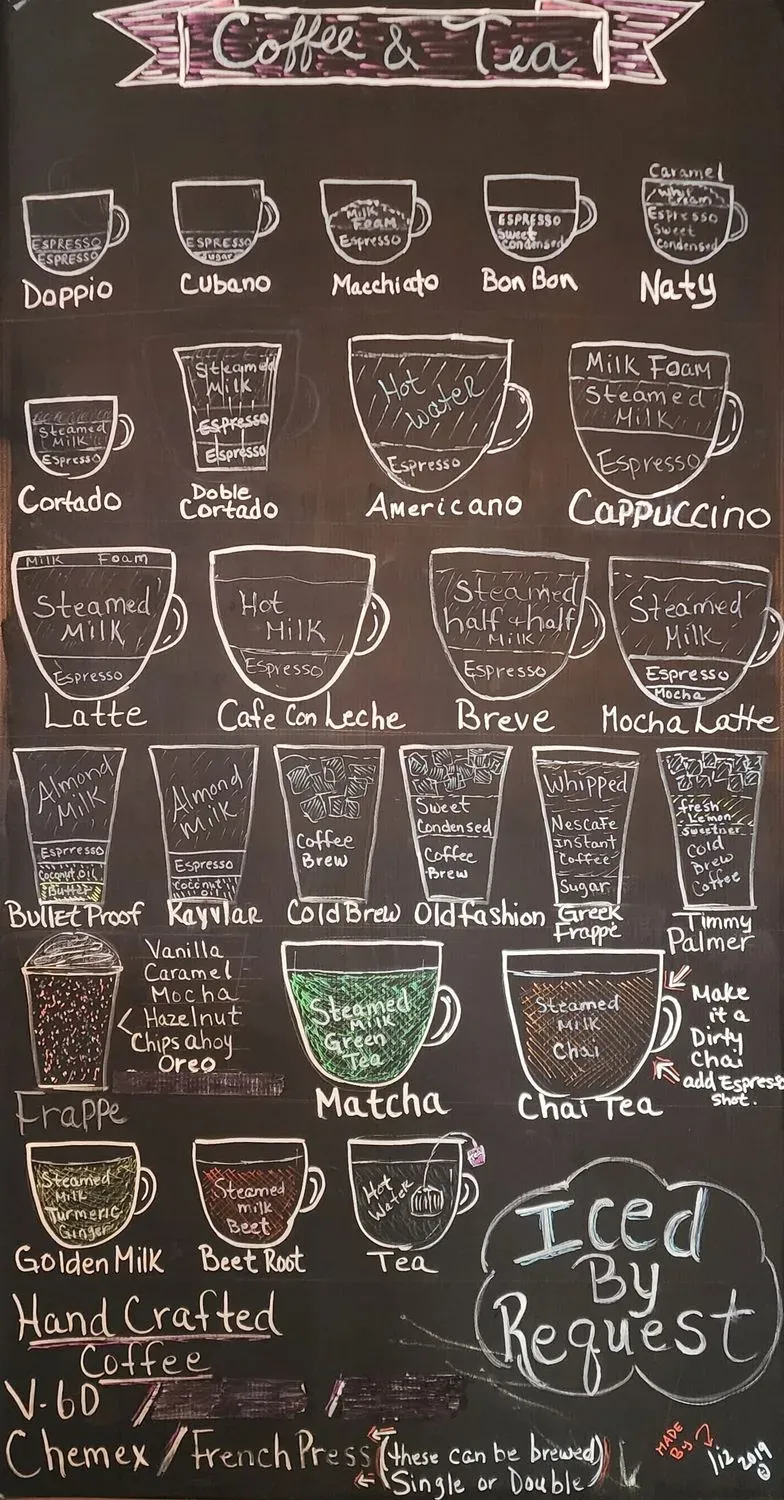 Coffee & Tea
ESPRESSO
ESPRESSO
Doppio
ESPRESSO
Sugar
Cubano
Milk
Foam
Espresso
Macchiato
ESPRESSO
Sweet
Condensed
Bon Bon
Caramel
Whip
Cream
Espresso
Sweet
Condensed
Naty
Steamed
Milk
Espresso
Cortado
Steamed
Milk
Espresso
Espresso
Doble
Cortado
Hot
Water
Espresso
Americano
Milk Foam
Steamed
Milk
Espresso
Cappuccino
Milk Foam
Steamed
Milk
Espresso
Latte
Hot
Milk
Espresso
Cafe Con Leche
Steamed
half & half
Milk
Espresso
Breve
Steamed
Milk
Espresso
Mocha
Mocha Latte
Almond
Milk
Esprresso
Coconut Oil
Butter
Bullet Proof
Almond
Milk
Espresso
Coconut
Oil
Kayvlar
Coffee
Brew
Cold Brew
Sweet
Condensed
Coffee
Brew
Old fashion
Whipped
Nescafe
Instant
Coffee
Sugar
Greek
Frappe
fresh
Lemon
Sweetner
Cold
Brew
Coffee
Timmy
Palmer
Vanilla
Caramel
Mocha
Hazelnut
Chips ahoy
Oreo
Frappe
Steamed
Milk
Green
Tea
Matcha
Steamed
Milk
Chai
Chai Tea
Make
it a
Dirty
Chai
add Espresso
Shot.
Steamed
Milk
Turmeric
Ginger
Golden Milk
Steamed
milk
Beet
Beet Root
Hot
Water
Tea
Iced
By
Request
Hand Crafted
Coffee
V-60 / /
Chemex / French Press (these can be brewed)
Single or Double
MADE
By
2019